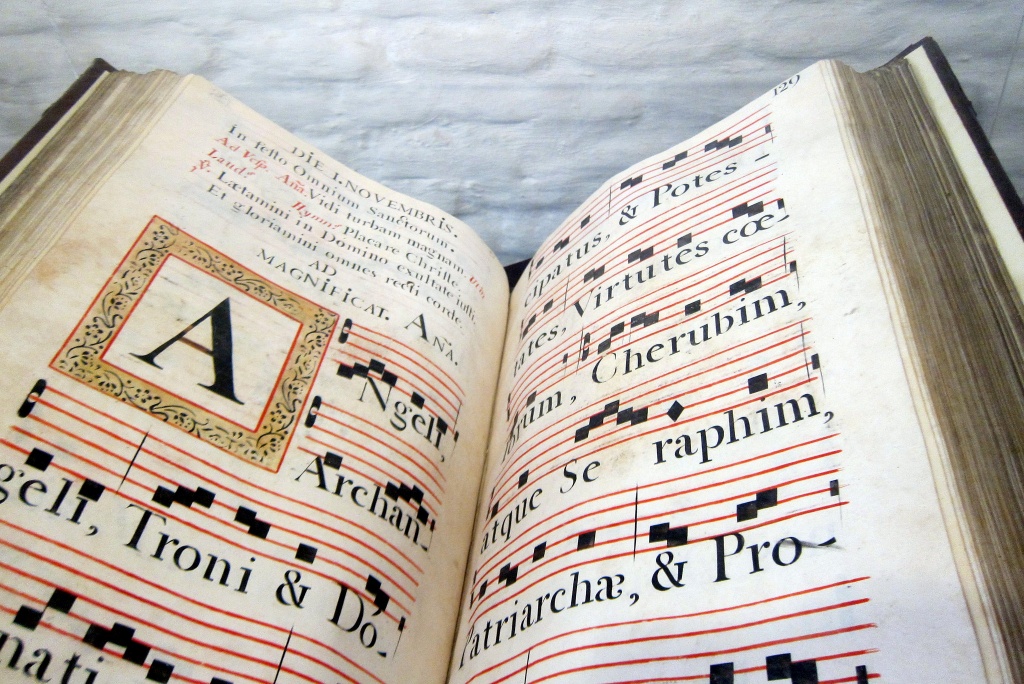 DIE I. NOVEMBRIS.
In festo Omnium Sanctorum.
Ad Vesp. Aña. Vidi turbam magnam.
Laud. Hymn. Placare Christe.
℣. Lætamini in Domino, exultate justi,
Et gloriamini omnes recti corde.
AD
MAGNIFICAT. AÑA.
A
Ngeli,
Archan-
geli, Troni & Do-
nati
120
cipatus, & Potes-
tates, Virtutes cœ-
lorum, Cherubim,
atque Se raphim,
Patriarchæ, & Pro-